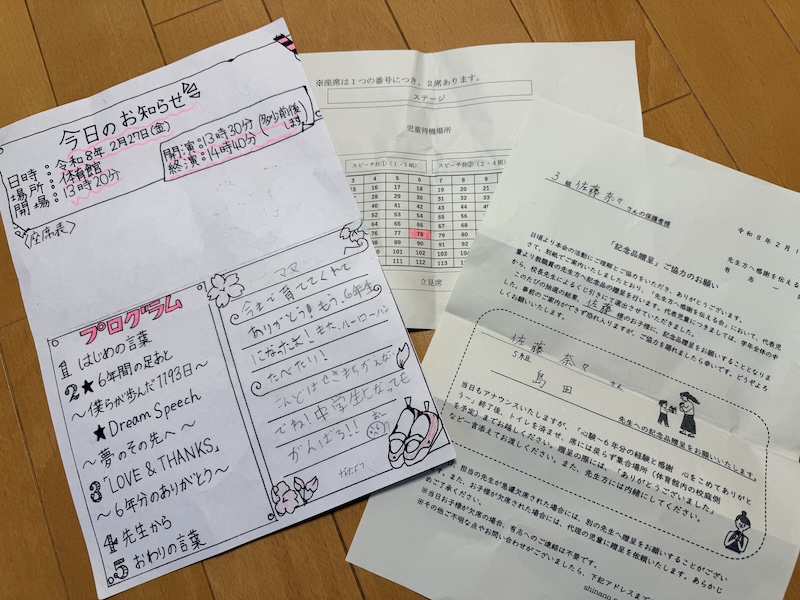 今日のお知らせ
日時：令和8年 2月27日(金)
場所：体育館
開場：13時20分
開演：13時30分(多少前後します)
終演：14時40分
〈座席表〉
プログラム
1 はじめの言葉
2 ★6年間の足あと
～僕らが歩んだ1193日～
★Dream Speech
～夢のその先へ～
3「LOVE & THANKS」
～6年分のありがとう～
4 先生から
5 おわりの言葉
ママ
今まで育ててくれて
ありがとう！もう、6年生
になったよ！また、ルーローハン
たべたい！
こんどはせきまちがえない
でね！中学生となっても
がんばる！！
※座席は1つの番号につき、2席あります。
ステージ
児童待機場所
スピーチ台①（1・3組）
スピーチ台②（2・4組）
3 4 5 6 7 8 9
15 16 17 18 19 20 21
27 28 29 30 31 32 33
39 40 41 42 43 44 45
51 52 53 54 55 56 57
63 64 65 66 67 68 69
75 76 77 78 79 80 81
87 88 89 90
111 112 113
立見席
3組 佐藤 奈々 さんの保護者様
令和8年2月1
先生方へ感謝を伝える
有志一
「記念品贈呈」ご協力のお願い
日頃より本会の活動にご理解とご協力をいただき、ありがとうございます。
さて、別紙でご案内いたしましたとおり、「先生方へ感謝を伝える会」において、代表児
童より教職員の先生方へ記念品贈呈を行います。代表児童につきましては、学年全体の中
から、校長先生によるくじ引きにて選出させていただきました。
このたびの抽選の結果、佐藤 様のお子様に、記念品贈呈をお願いすることとなりま
した。事前のご案内ができず恐れ入りますが、ご協力を賜れましたら幸いです。どうぞよろ
しくお願いいたします。
佐藤 奈々 さん
5組 島田
先生への記念品贈呈をお願いいたします。
当日もアナウンスいたしますが、「心験～6年分の経験と感謝 心をこめてありがと
う～」終了後、トイレを済ませ、席には戻らず集合場所（体育館内の校庭側
を予定）までお越しください。贈呈の際には、「ありがとうございました」
など一言添えてお渡しください。また、先生方には内緒にしてください。
担当の先生が急遽欠席された場合には、別の先生へ贈呈をお願いすることがござい
ます。また、お子様が欠席された場合には、代理の児童に贈呈を依頼いたします。あらかじ
めご了承ください。
※当日お子様が欠席の場合、有志へのご連絡は不要です。
※その他ご不明な点やお問い合わせがございましたら、下記アドレスまで
shinano